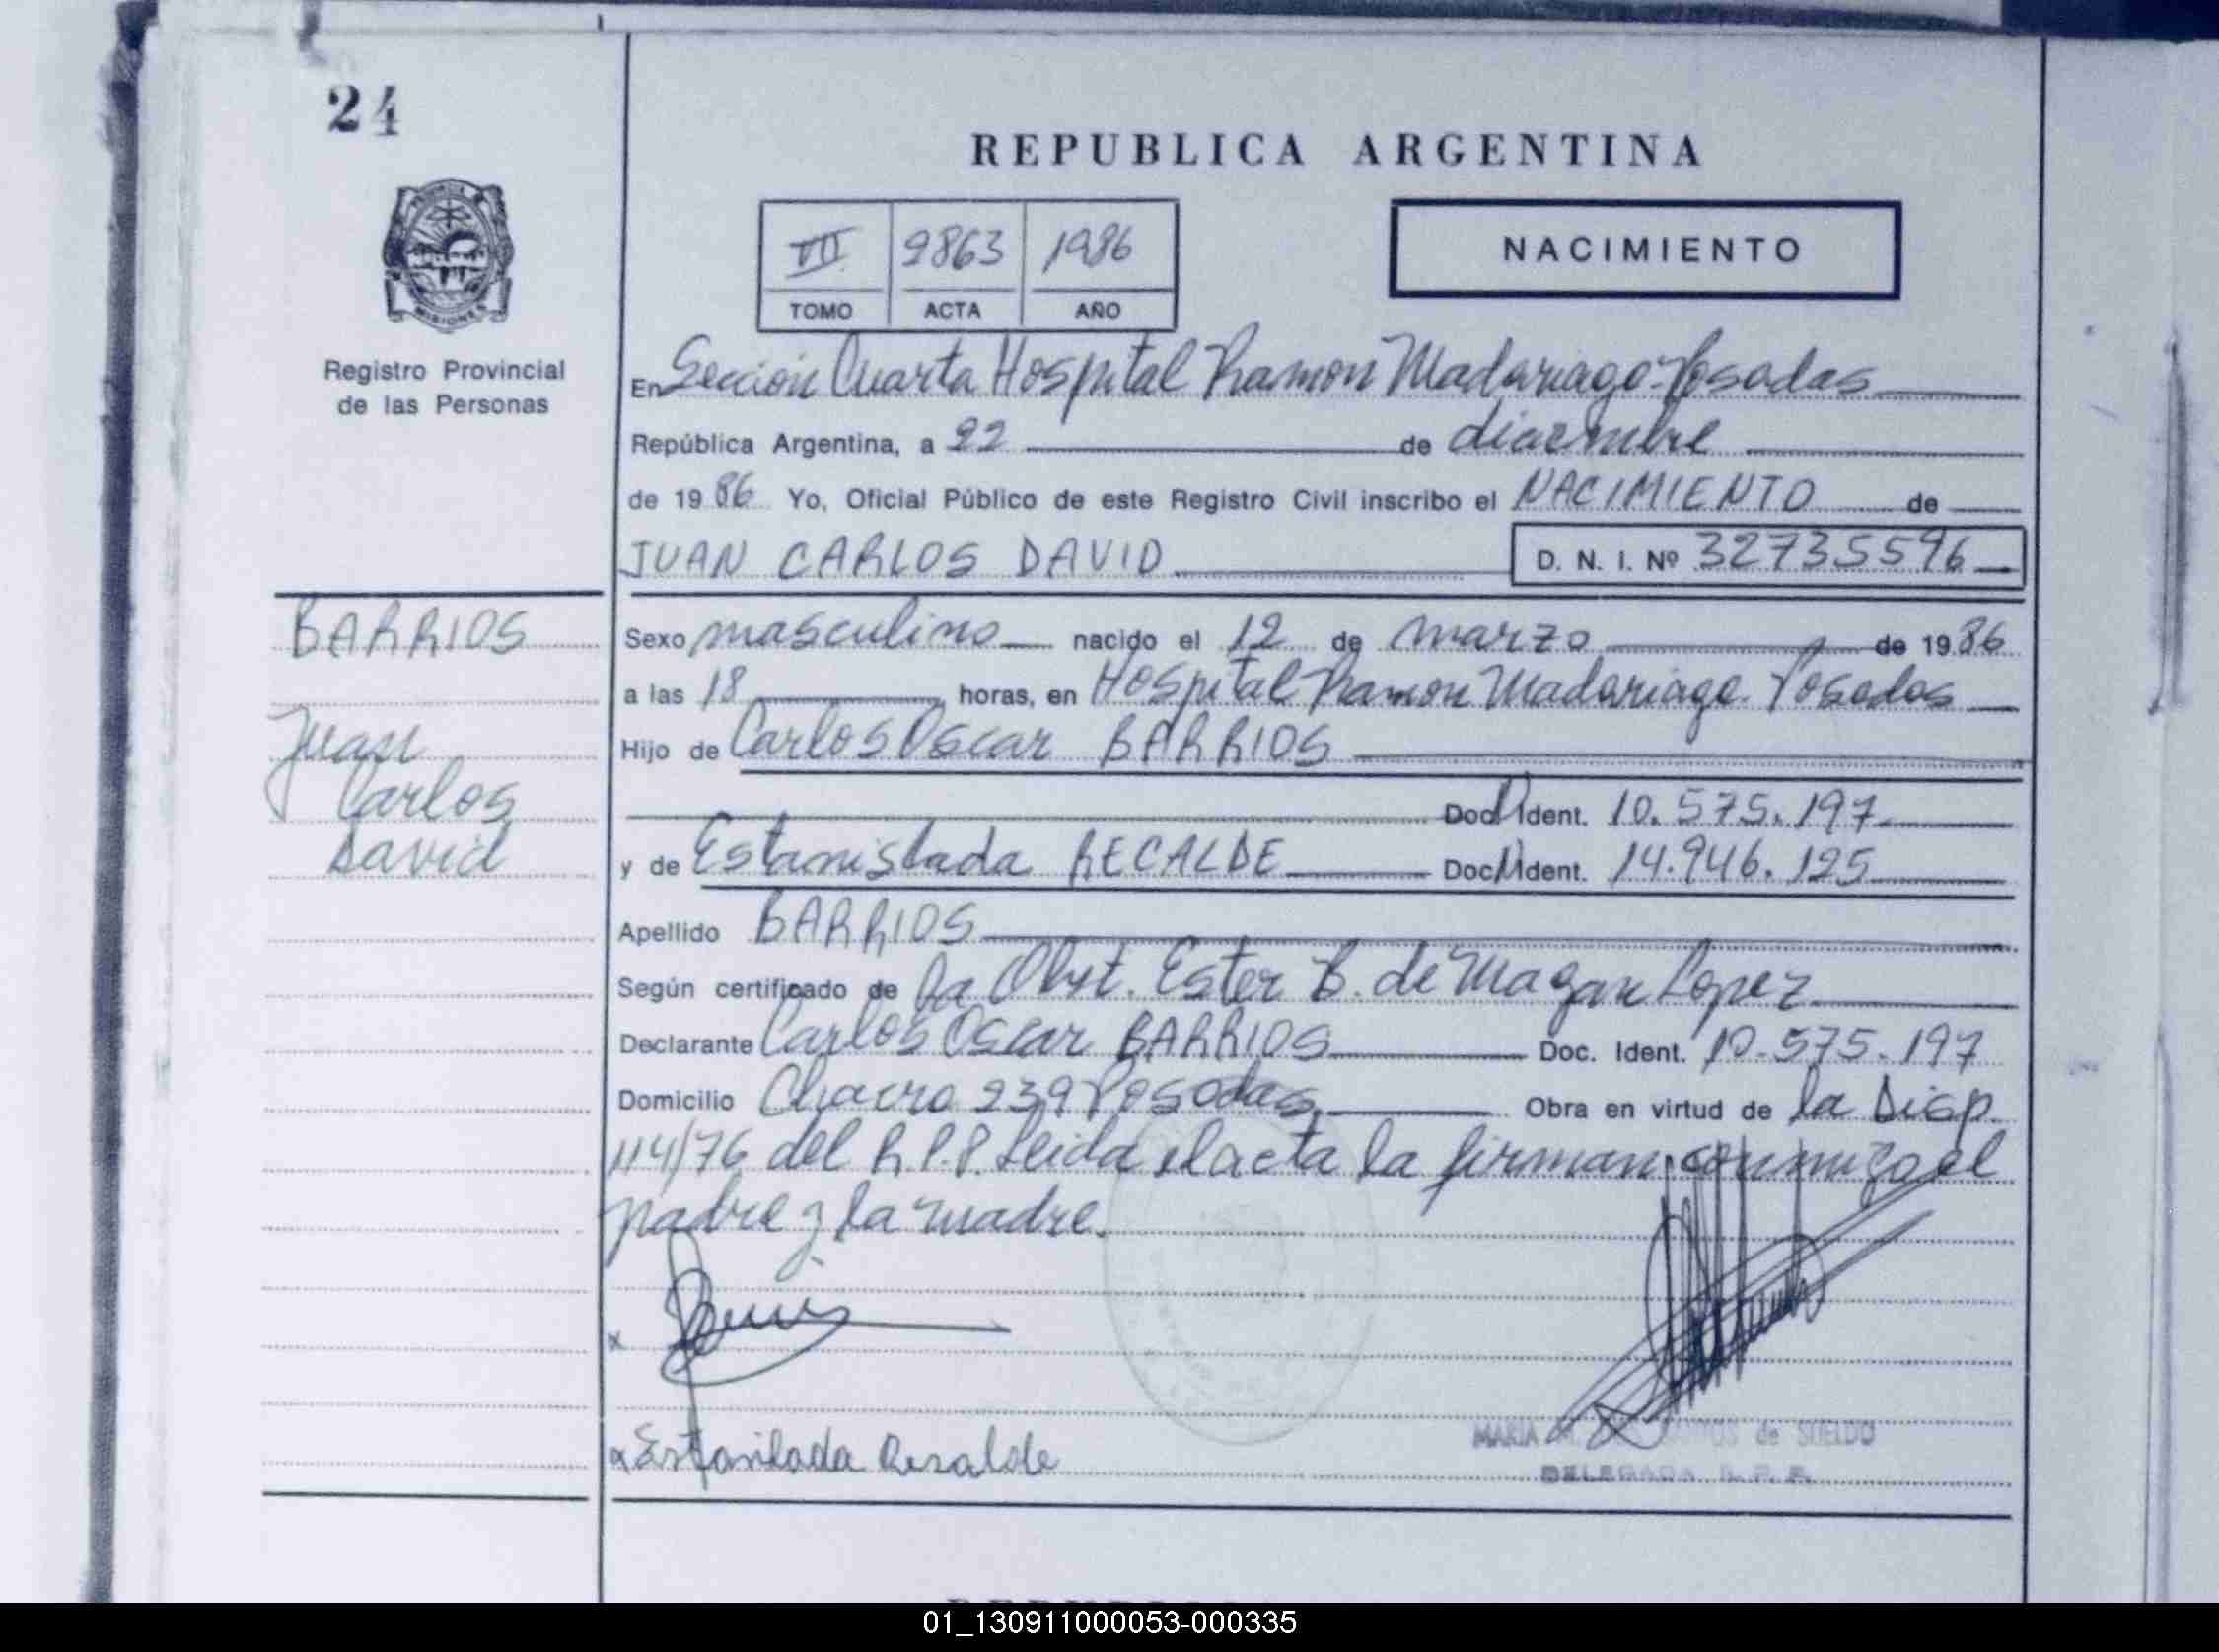 24
REPUBLICA ARGENTINA
VII 2863 1986
TOMO ACTA AÑO
NACIMIENTO
MISIONES
Registro Provincial
de las Personas
En Sección Cuarta Hospital Ramon Madariaga-Posadas
República Argentina, a 22 de diciembre
de 1986 Yo, Oficial Público de este Registro Civil inscribo el NACIMIENTO de
JUAN CARLOS DAVID D. N. I. Nº 32735596
BARRIOS
Juan
Carlos
David
Sexo masculino nacido el 12 de marzo de 1986
a las 18 horas, en Hospital Ramon Madariaga. Posadas
Hijo de Carlos Oscar BARRIOS
Doc. Ident. 10.575.197
y de Estanislada RECALDE Doc. Ident. 14.946.125
Apellido BARRIOS
Según certificado de la Obst. Ester B. de Magan Lopez
Declarante Carlos Oscar BARRIOS Doc. Ident. 10.575.197
Domicilio Chacra 239 Posadas. Obra en virtud de la Disp.
114/76 del R.P.P. Leida el acta la firman conmigo el
padre y la madre.
x
x Estanilada Resalde
MARIA de SUELDO
DELEGADA R. P. P.
01_130911000053-000335